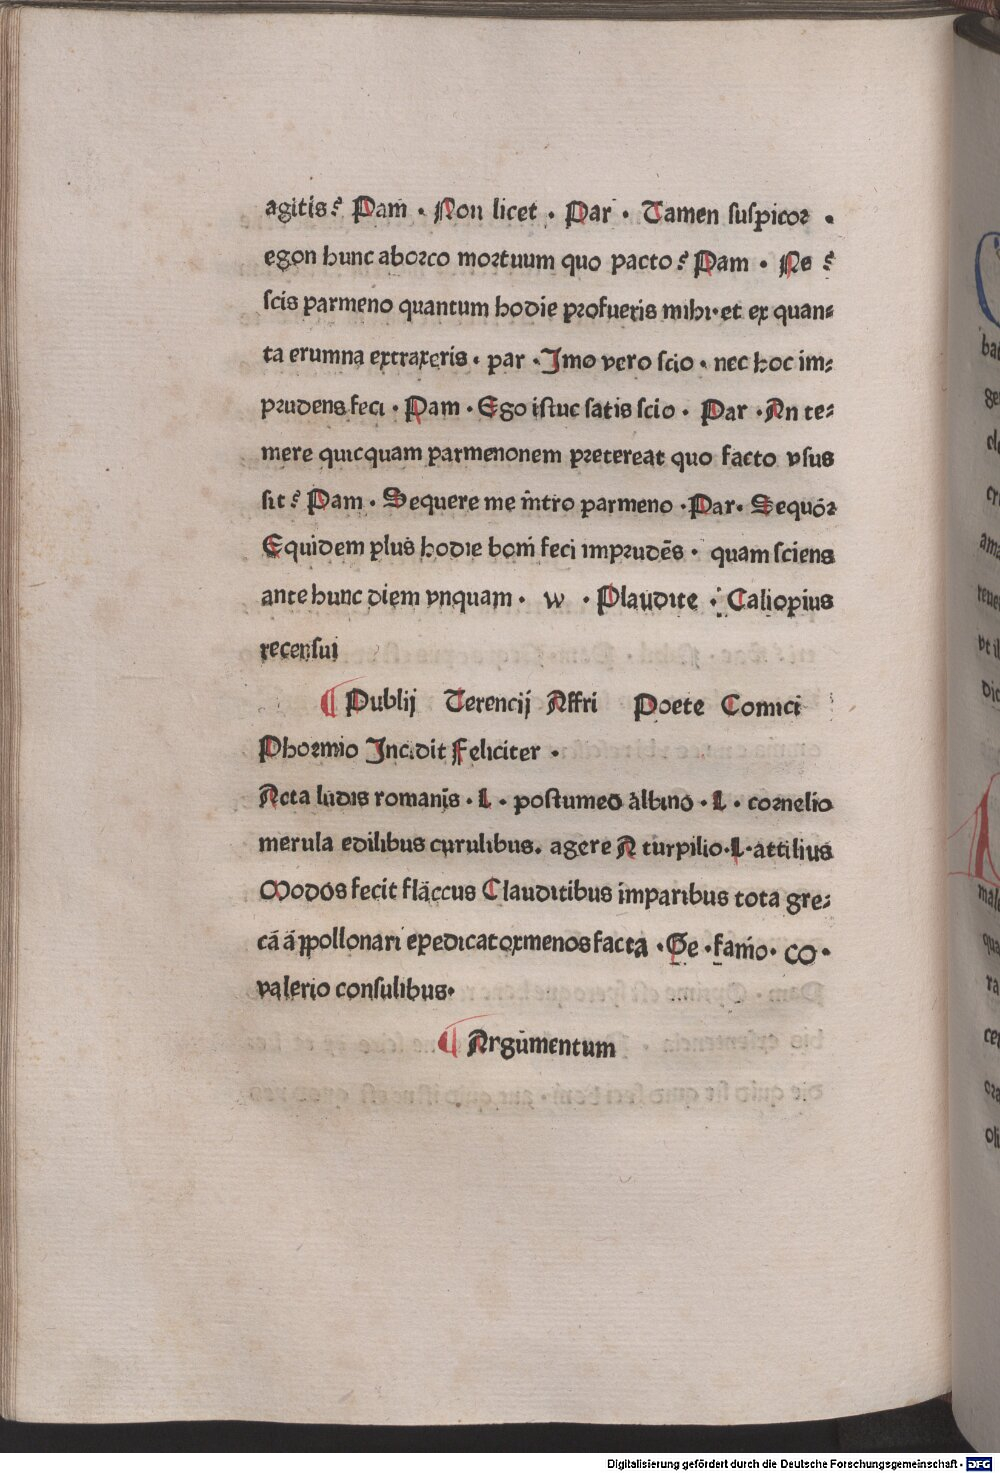 agitis? Pam̄ · Non licet · Par · Tamen suspicor ·
egon hunc ab orco mortuum quo pacto? Pam · Ne ?
scis parmeno quantum hodie profueris mihi · et ex quan=
ta erumna extraxeris · par · Imo vero scio · nec hoc im=
prudens feci · Pam · Ego istuc satis scio · Par · An te=
mere quicquam parmenonem pretereat quo facto vsus
sit? Pam · Sequere me ītro parmeno · Par · Sequor
Equidem plus hodie boni feci imprudēs · quam sciens
ante hunc diem vnquam · w · Plaudite · Caliopius
recensui
¶ Publij Terencij Affri Poete Comici
Phormio Incidit Feliciter ·
Acta ludis romanis · L · postumeo albino · L · cornelio
merula edilibus curulibus · agere A turpilio · L · attilius
Modos fecit flaccus Clauditibus imparibus tota gre=
cā appollonari epedicatoxmenos facta · Ge · fam̄o · CO ·
valerio consulibus ·
¶ Argumentum
Digitalisierung gefördert durch die Deutsche Forschungsgemeinschaft - DFG